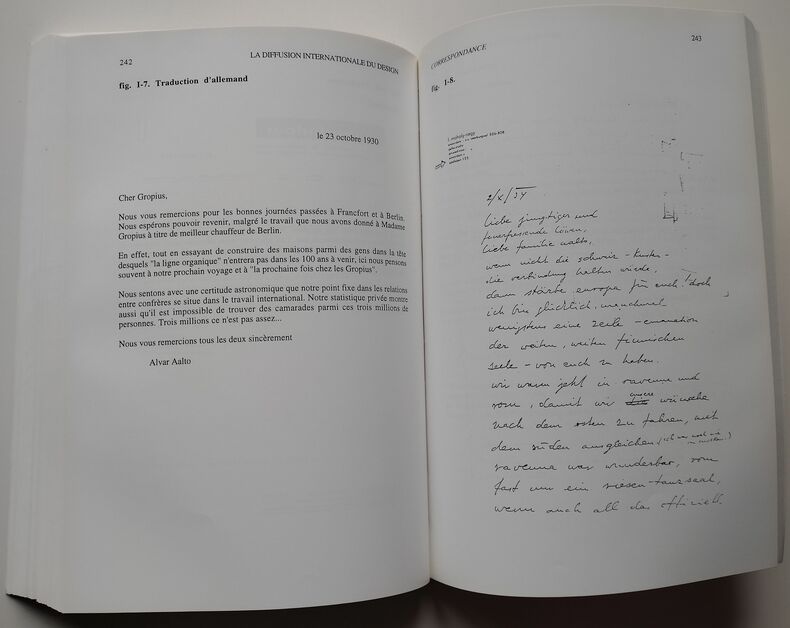 242
LA DIFFUSION INTERNATIONALE DU DESIGN
fig. I-7. Traduction d'allemand
le 23 octobre 1930
Cher Gropius,
Nous vous remercions pour les bonnes journées passées à Francfort et à Berlin.
Nous espérons pouvoir revenir, malgré le travail que nous avons donné à Madame
Gropius à titre de meilleur chauffeur de Berlin.
En effet, tout en essayant de construire des maisons parmi des gens dans la tête
desquels "la ligne organique" n'entrera pas dans les 100 ans à venir, ici nous pensons
souvent à notre prochain voyage et à "la prochaine fois chez les Gropius".
Nous sentons avec une certitude astronomique que notre point fixe dans les relations
entre confrères se situe dans le travail international. Notre statistique privée montre
aussi qu'il est impossible de trouver des camarades parmi ces trois millions de
personnes. Trois millions ce n'est pas assez...
Nous vous remercions tous les deux sincèrement
Alvar Aalto
CORRESPONDANCE
243
fig. I-8.
l. moholy-nagy
liebe
und
feuerfressende löwen,
liebe familie aalto,
wenn nicht die schweiz-
die verbindung halten würde,
dann stärbe europa für euch! doch
ich bin glücklich, manchmal
wenigstens eine zeile - emanation
der weiten, weiten finnischen
seele - von euch zu haben.
wir waren jetzt in ravenna und
rom, damit wir unsere wünsche
nach dem osten zu fahren, mit
dem süden ausgleichen
ravenna war wunderbar, rom
fast nur ein riesen-tanzsaal,
wenn auch all das offiziell